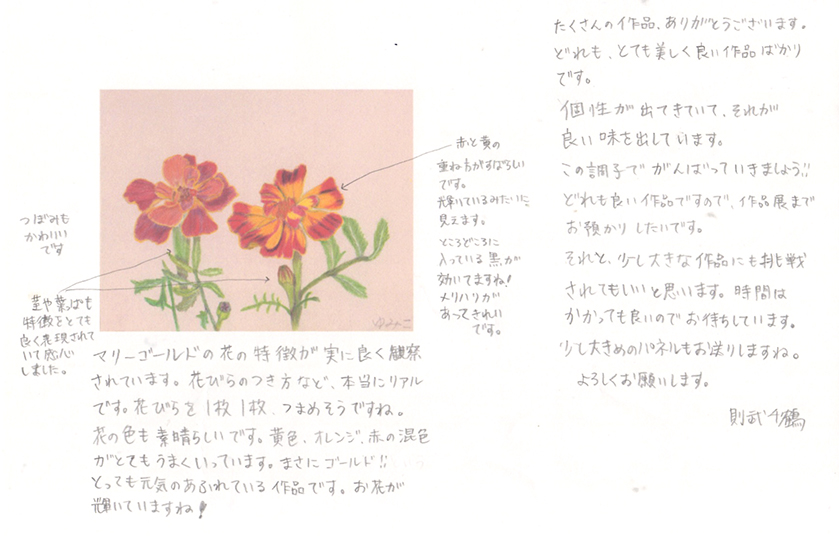 つぼみも
かわいい
です
茎や葉っぱも
特徴をとても
良く表現されて
いて感心
しました。
赤と黄の
重ね方がすばらしい
です。
輝いているみたいに
見えます。
ところどころに
入っている黒が
効いてますね!
メリハリが
あってきれい
です。
マリーゴールドの花の特徴が実に良く観察
されています。花びらのつき方など、本当にリアル
です。花びらを1枚1枚、つまめそうですね。
花の色も素晴らしいです。黄色、オレンジ、赤の混色
がとてもうまくいっています。まさにゴールド!!
とっても元気のあふれている作品です。お花が
輝いていますね!
たくさんの作品、ありがとうございます。
どれも、とても美しく良い作品ばかり
です。
個性が出てきていて、それが
良い味を出しています。
この調子でがんばっていきましょう!!
どれも良い作品ですので、作品展まで
お預かりしたいです。
それと、少し大きな作品にも挑戦
されてもいいと思います。時間は
かかっても良いのでお待ちしています。
少し大きめのパネルもお送りしますね。
よろしくお願いします。
則武千鶴